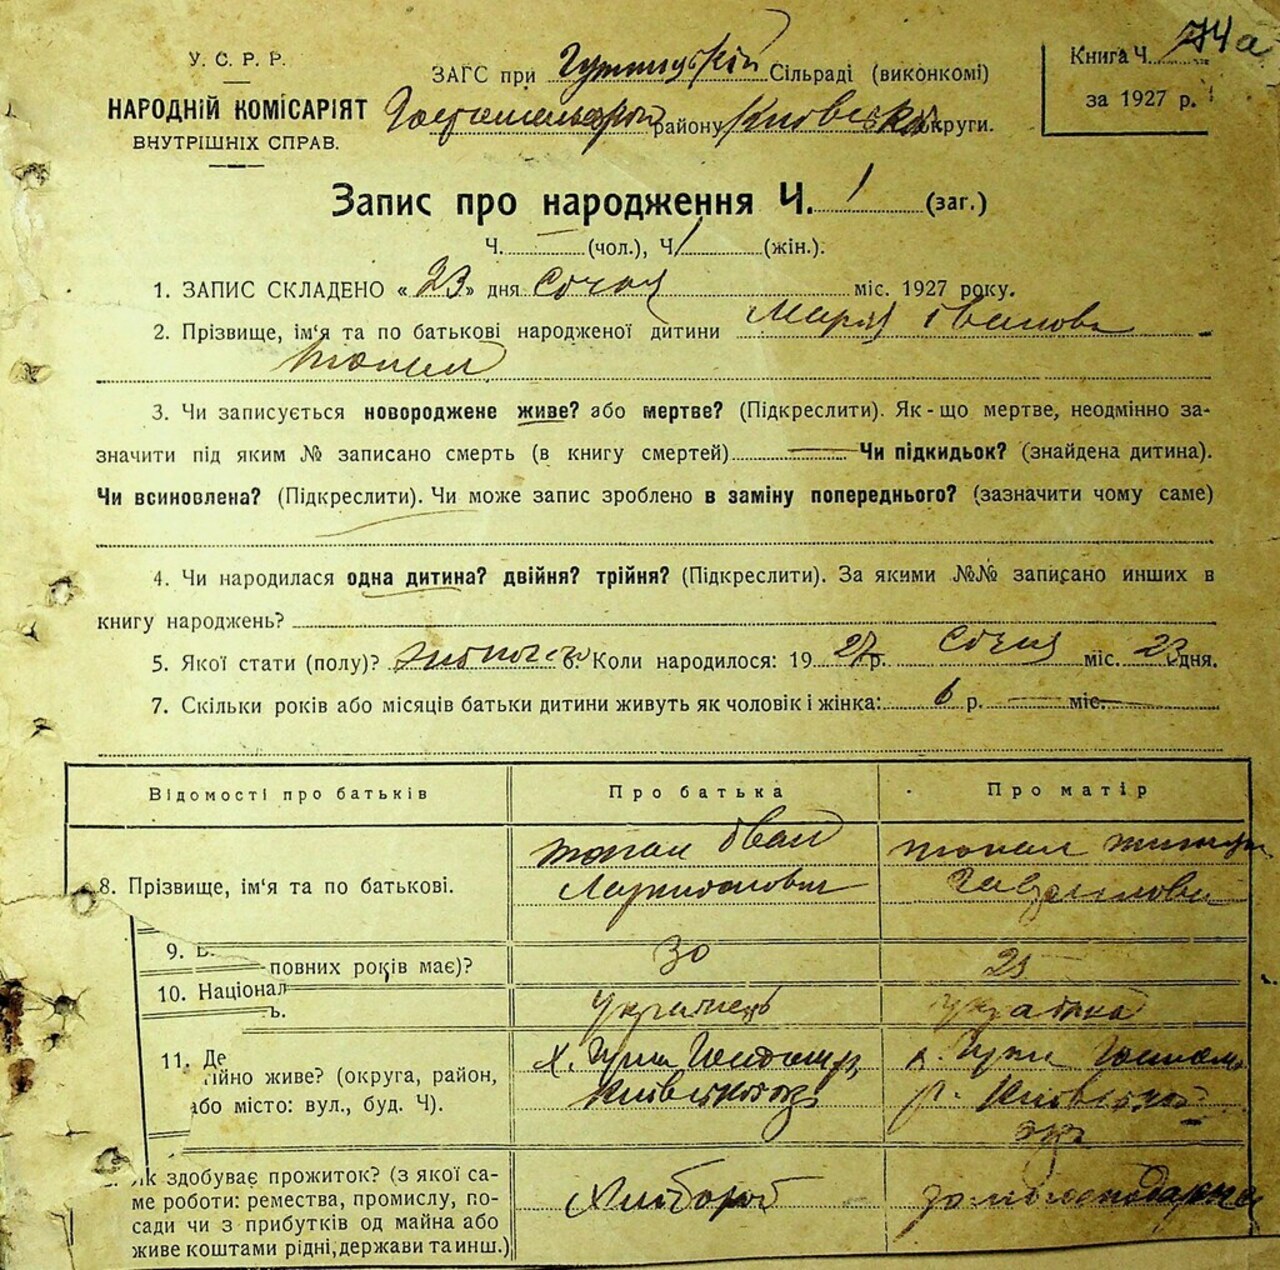 У. С. Р. Р.
НАРОДНІЙ КОМІСАРІЯТ
ВНУТРІШНІХ СПРАВ.
ЗАГС при Сільраді (виконкомі)
району Київської округи.
Книга Ч. 74а
за 1927 р.
Запис про народження Ч. 1 (заг.)
Ч. — (чол.), Ч. 1 (жін.).
1. ЗАПИС СКЛАДЕНО « 23 » дня Січня міс. 1927 року.
2. Прізвище, ім'я та по батькові народженої дитини Марія Іванова
3. Чи записується новороджене живе? або мертве? (Підкреслити). Як-що мертве, неодмінно за-
значити під яким № записано смерть (в книгу смертей) — Чи підкидьок? (знайдена дитина).
Чи всиновлена? (Підкреслити). Чи може запис зроблено в заміну попереднього? (зазначити чому саме)
4. Чи народилася одна дитина? двійня? трійня? (Підкреслити). За якими №№ записано инших в
книгу народжень?
5. Якої стати (полу)? 6. Коли народилося: 19 27 р. Січня міс. 23 дня.
7. Скільки років або місяців батьки дитини живуть як чоловік і жінка: 6 р. — міс. —
Відомості про батьків
Про батька
Про матір
8. Прізвище, ім'я та по батькові.
Топал Іван
Топал
Гаврилова
9. повних років має)?
30
25
10. Націонал
ь.
Українець
Українка
11. Де
ійно живе? (округа, район,
або місто: вул., буд. Ч).
х.
Київської окр
х.
р. Київської
окр
як здобуває прожиток? (з якої са-
ме роботи: ремества, промислу, по-
сади чи з прибутків од майна або
живе коштами рідні, держави та инш.)
Хлібороб
домогосподарка